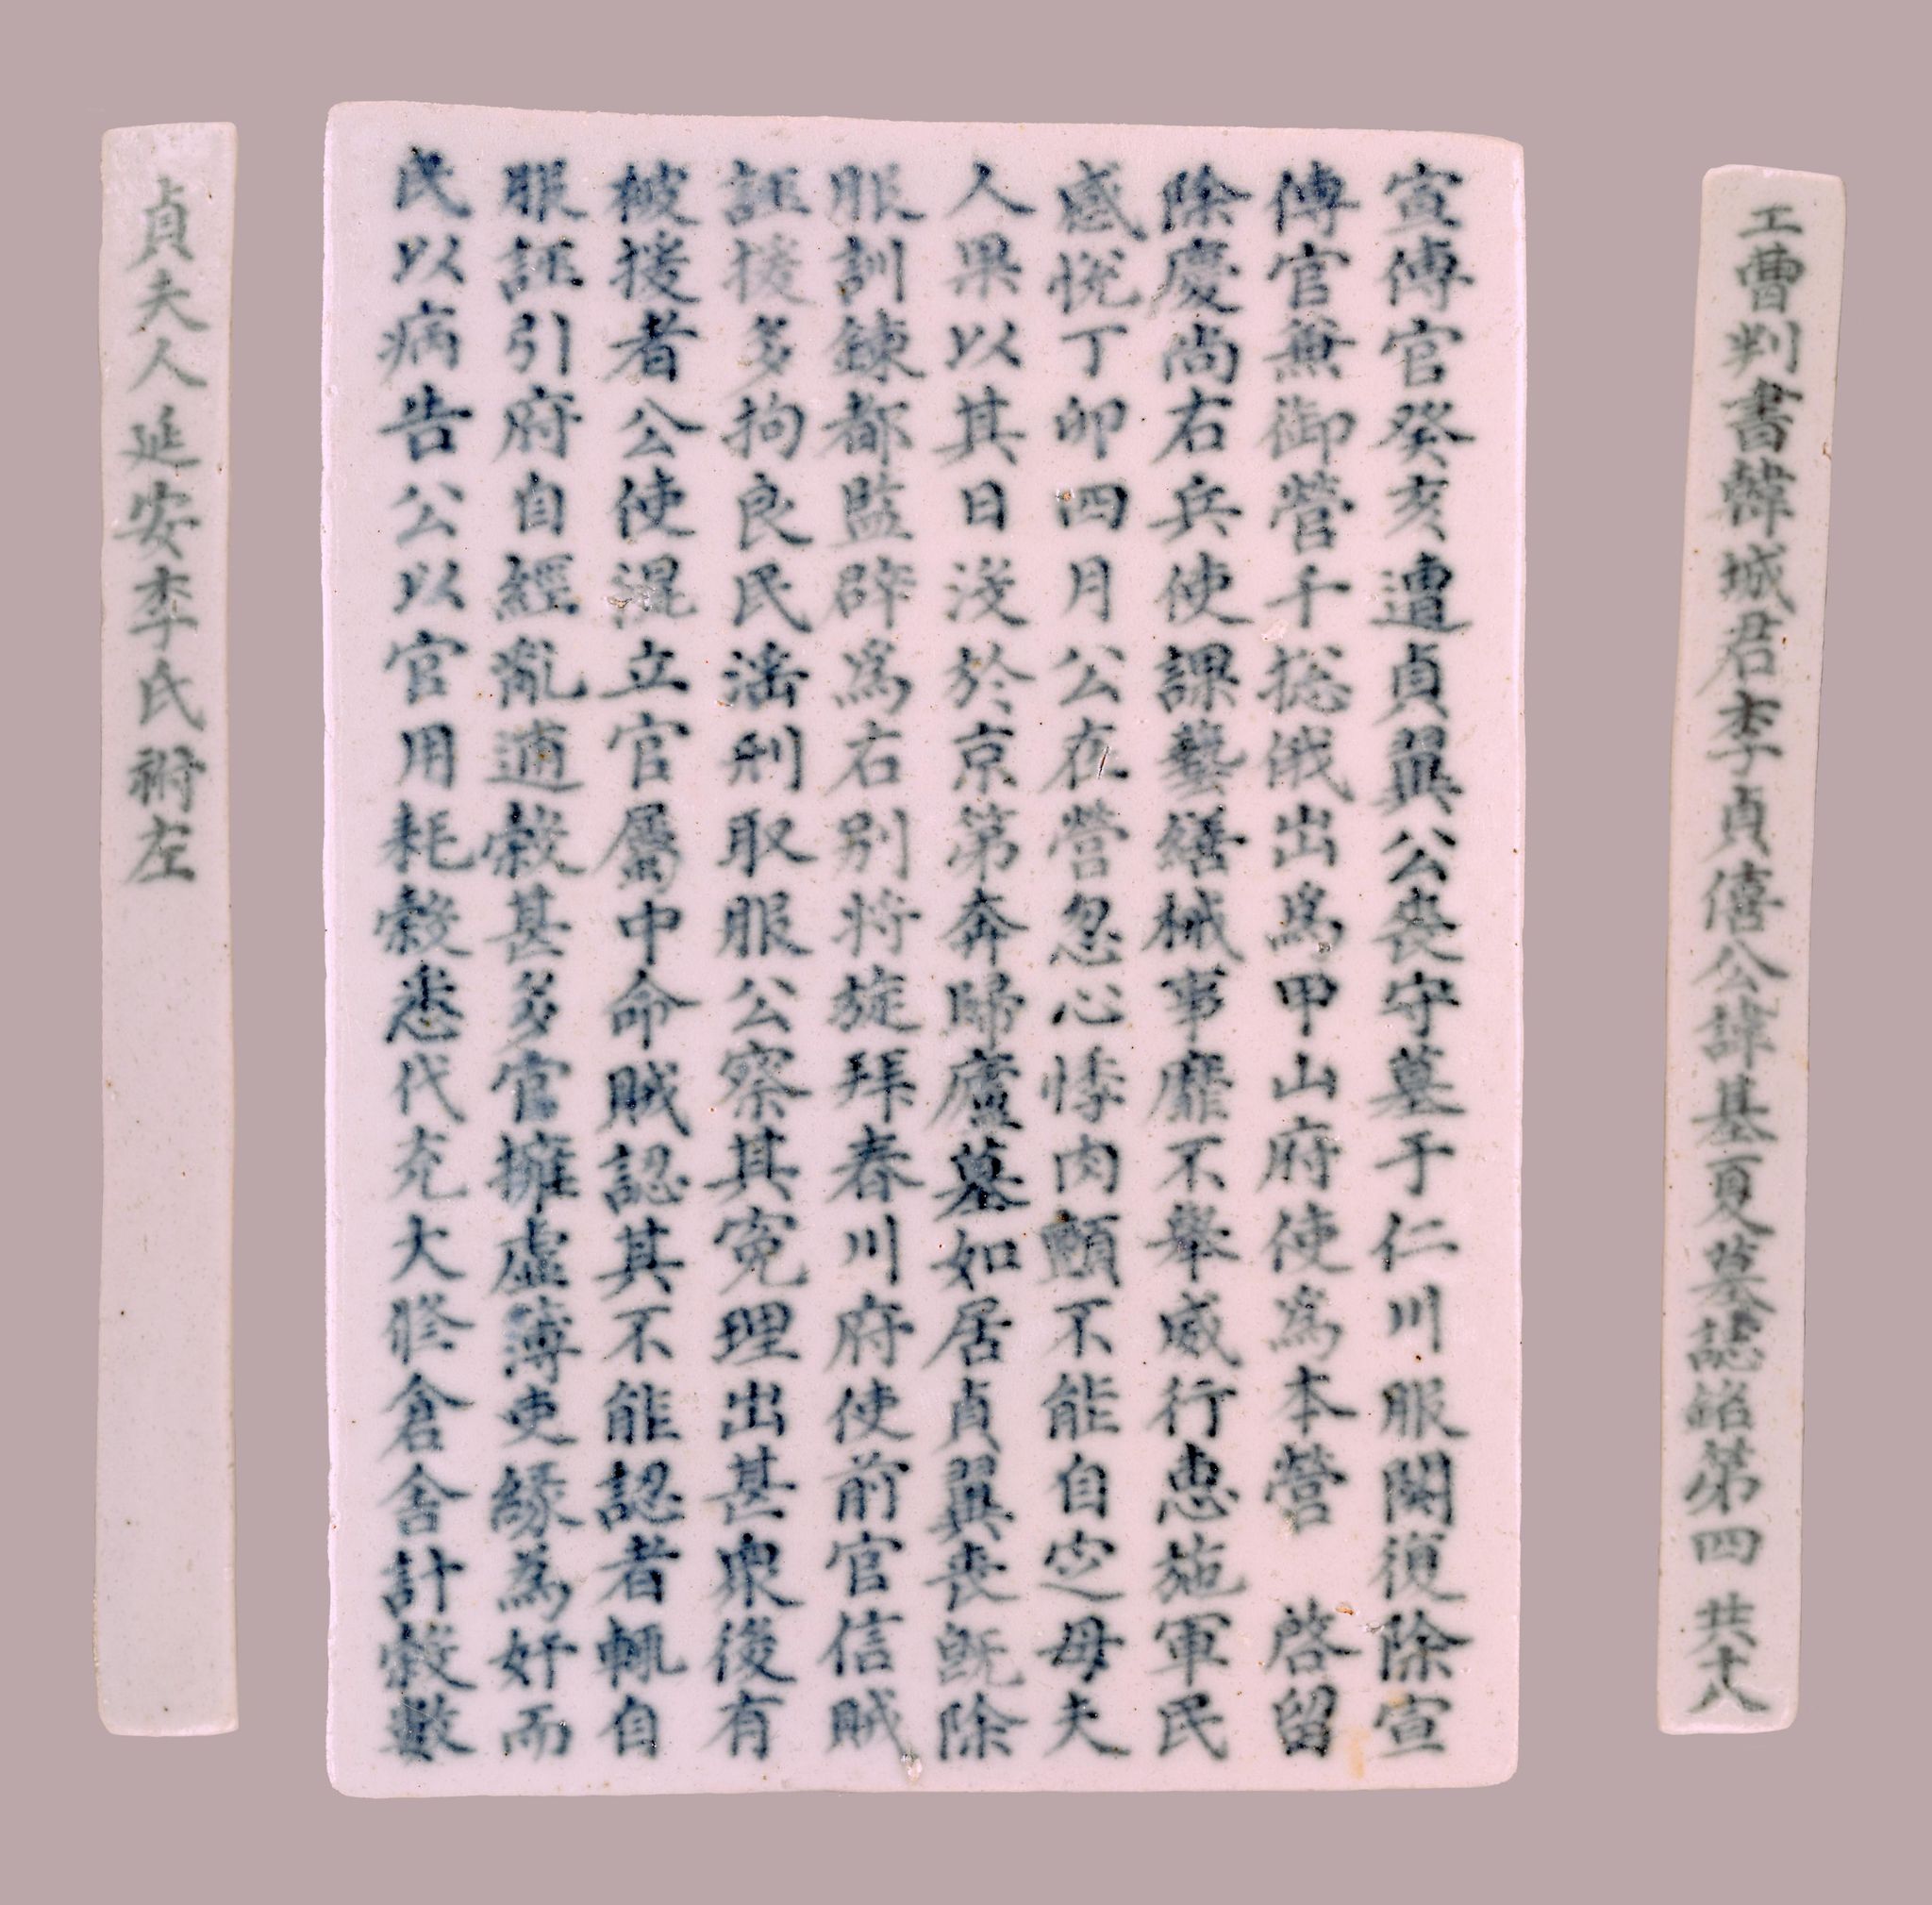 工曹判書韓城君李貞僖公諱基夏墓誌銘第四 共十八
宣傳官癸亥遭貞翼公喪守墓于仁川服闋復除宣
傳官兼御營千摠俄出爲甲山府使爲本營 啓留
除慶尚右兵使課藝繕械事靡不擧威行惠施軍民
感悅丁卯四月公在營忽心悸肉顫不能自定母夫
人果以其日沒於京第奔歸廬墓如居貞翼喪旣除
服訓鍊都監辟爲右別將旋拜春川府使前官信賊
誣援多拘良民淫刑取服公察其寃理出甚衆後有
被援者公使混立官屬中命賊認其不能認者輒自
服誣引府自經亂逋糓甚多官擁虛簿吏緣爲奸而
民以病告公以官用耗糓悉代充大修倉舍計糓數
貞夫人延安李氏祔左